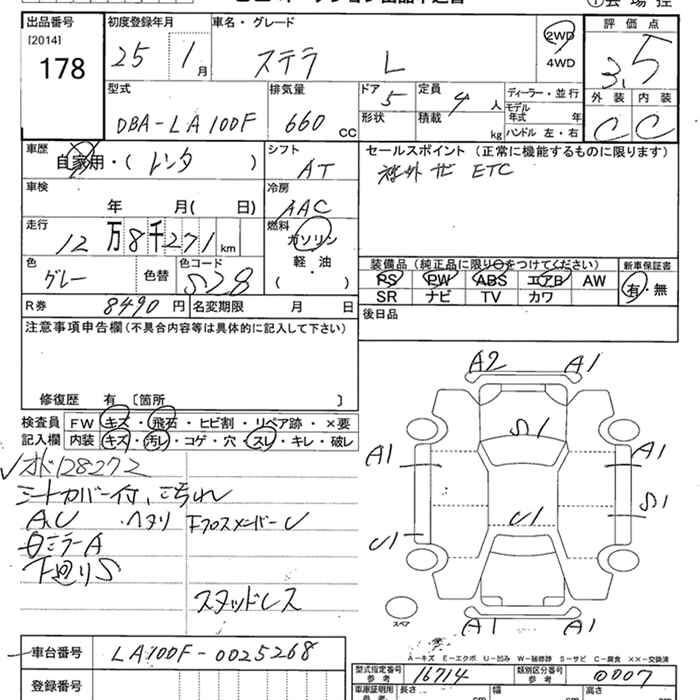 出品番号
[2014]
178
初度登録年月
25 1 月
車名・グレード
ステラ L
2WD
4WD
評価点
3.5
型式
DBA-LA100F
排気量
660 CC
ドア 5
形状
定員 4 人
積載 kg
ディーラー・並行
モデル
年式 年
ハンドル 左・右
外装 内装
C C
車歴
自家用・(レンタ )
シフト
AT
車検
年 月( 日)
冷房
AAC
走行
12万8千271km
燃料
ガソリン
軽・油
( )
色
グレー
色替
色コード
S28
R券 8490 円
名変期限 月 日
セールスポイント (正常に機能するものに限ります)
ナビ ETC
装備品 (純正品に限り○をつけてください)
PS PW ABS エアB AW
SR ナビ TV カワ
新車保証書
有・無
後日品
注意事項申告欄 (不具合内容等は具体的に記入して下さい)
修復歴 有 〔箇所 〕
検査員
記入欄
FW キズ・飛石・ヒビ割・リペア跡・×要
内装 キズ・汚れ・コゲ・穴・スレ・キレ・破レ
オド128272
シートカバー付、シ汚れ
AU ・ヘタリ Fクロスメンバー U
ミラーA
下廻りS
スタッドレス
A2 A1
S1
A1 A1
S1
U1 U1
A1 A1
スペア
A-キズ E-エクボ U-凹み W-補修跡 S-サビ C-腐食 ××-交換済
車台番号 LA100F-0025268
登録番号
型式指定番号
参考
16714
類別区分番号
参考
0007
車庫証明用
参考
長さ cm
幅 cm
高 cm